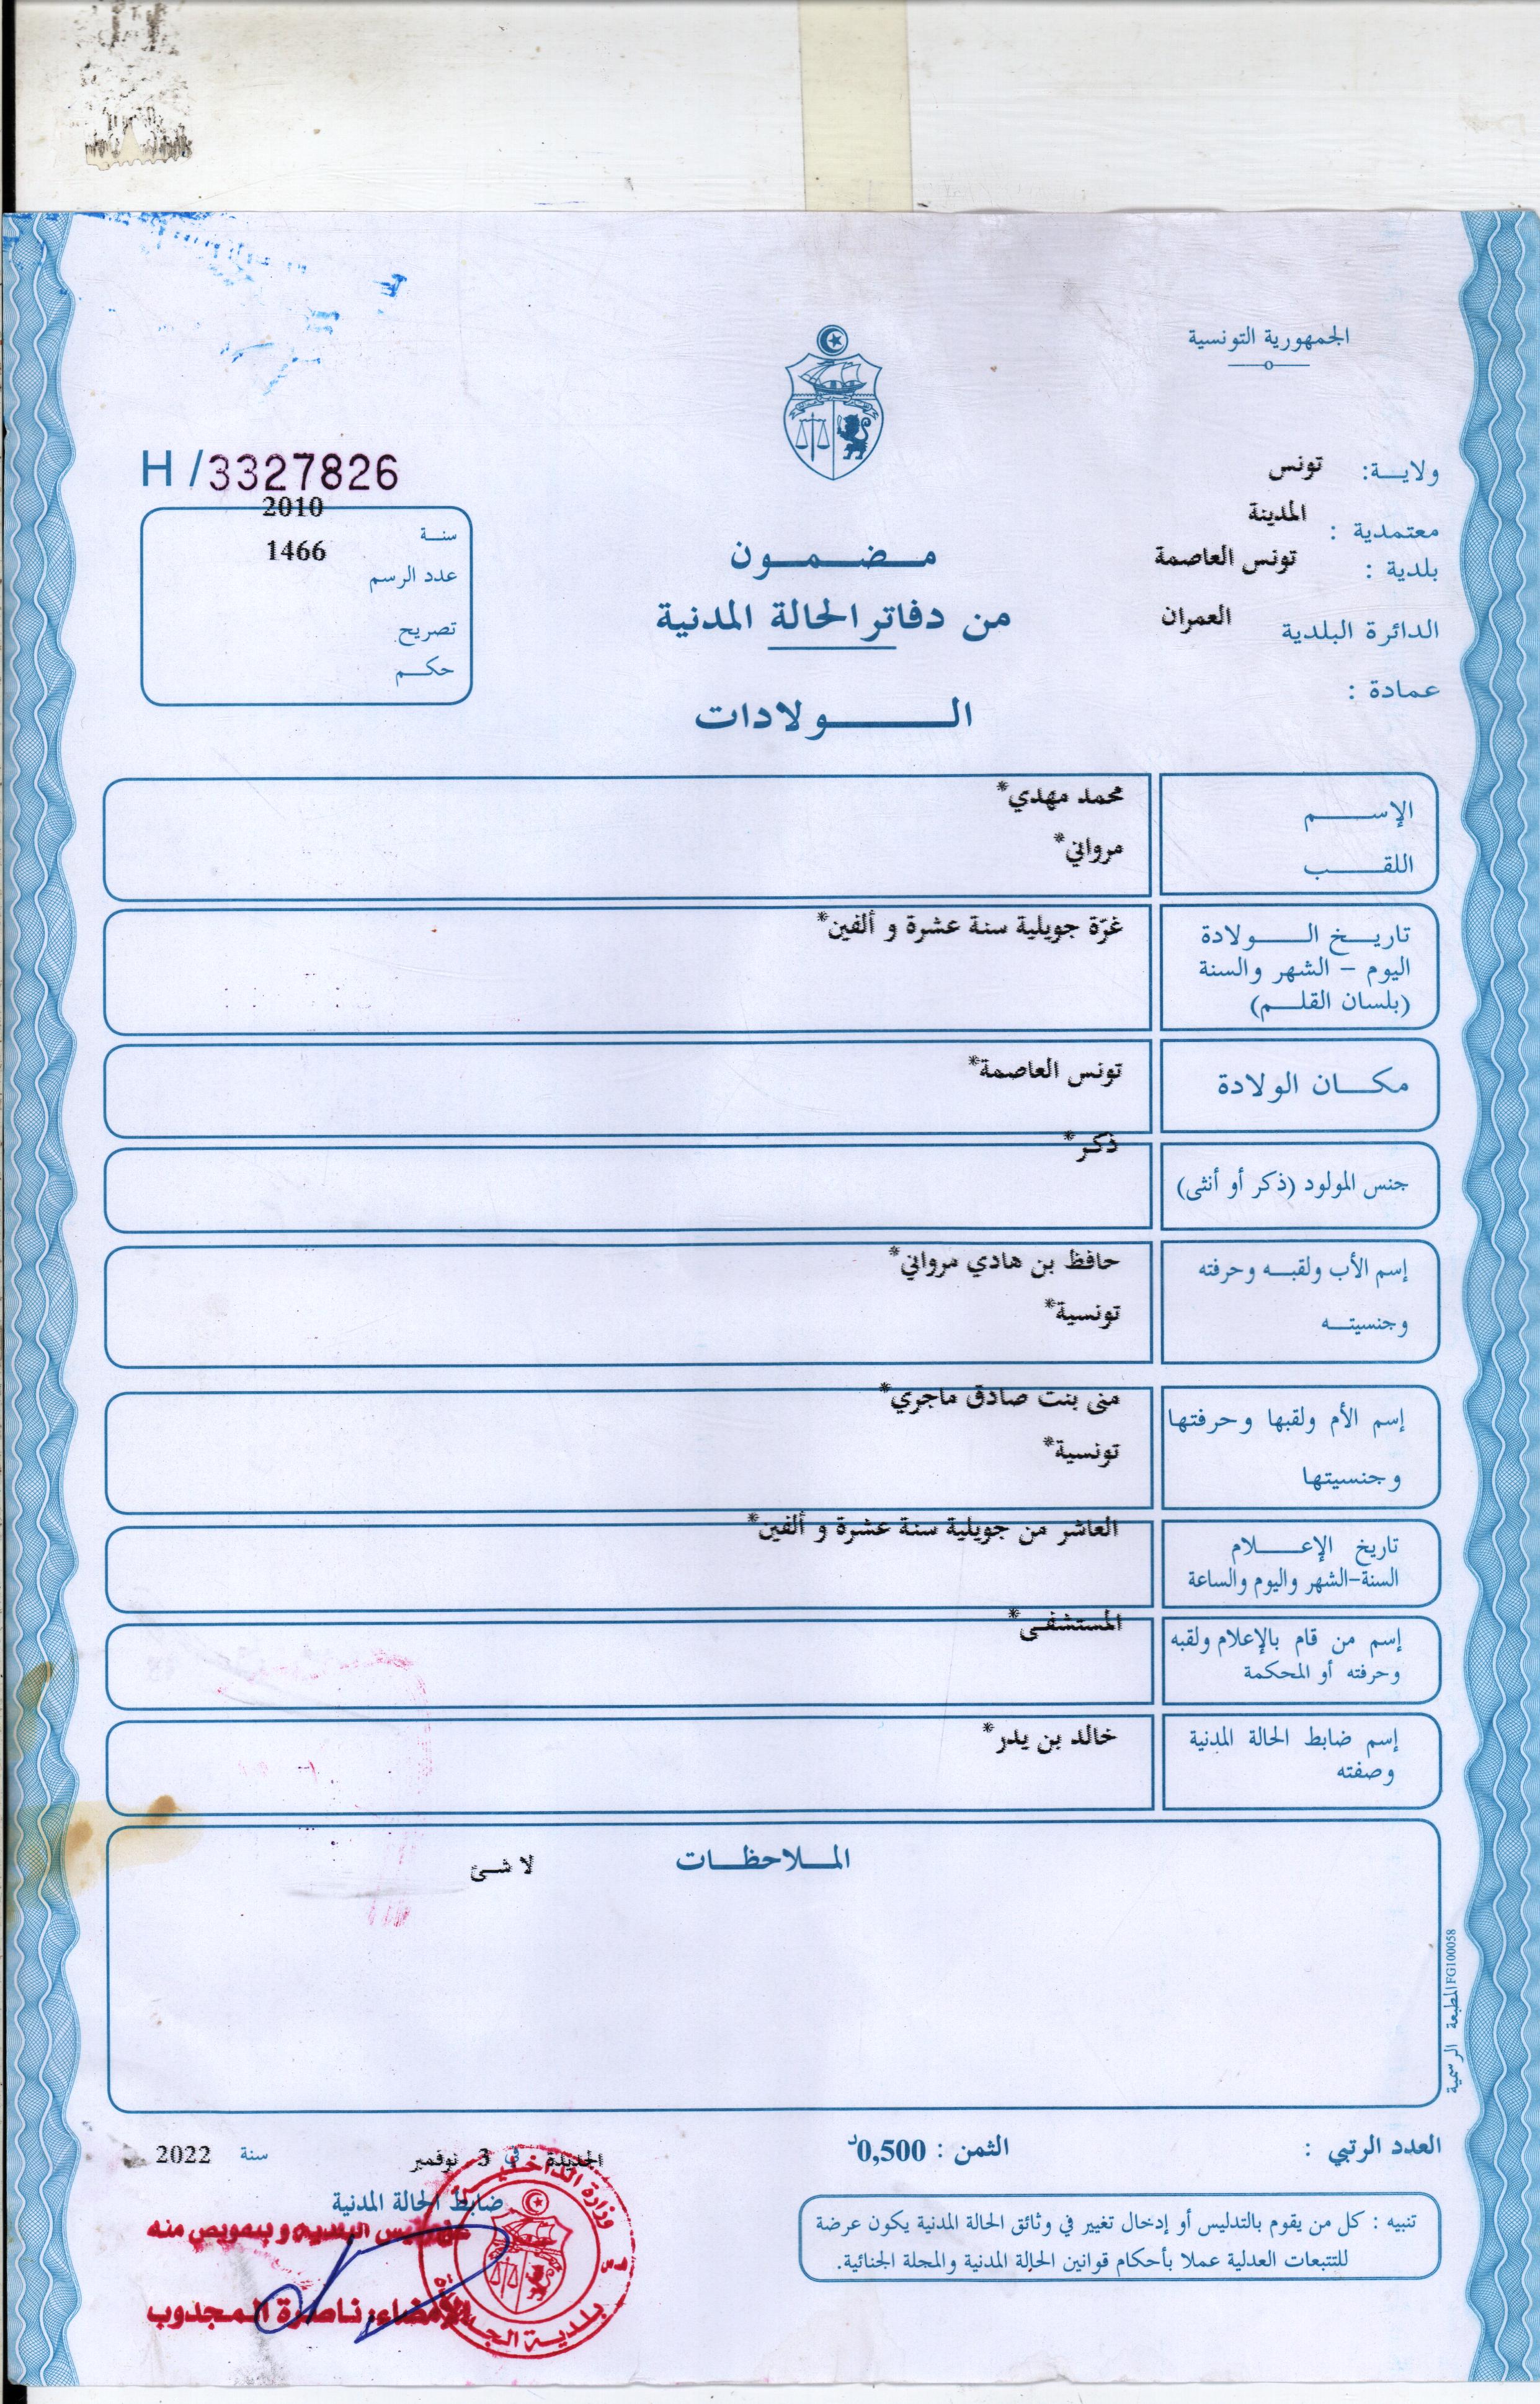 الجمهورية التونسية
ولايـــة: تونس
معتمدية : المدينة
بلدية : تونس العاصمة
الدائرة البلدية العمران
عمادة :
H/3327826
سنـــة 2010
عدد الرسم 1466
تصريح
حكــم
مــضــمــون
من دفاتر الحالة المدنية
الـــولادات
الإســـــم محمد مهدي*
اللقـــــب مرواني*
تاريــخ الـــولادة غرّة جويلية سنة عشرة و ألفين*
اليوم – الشهر والسنة
(بلسان القلــم)
مكـــان الولادة تونس العاصمة*
جنس المولود (ذكر أو أنثى) ذكر*
إسم الأب ولقبــه وحرفته حافظ بن هادي مرواني*
وجنسيتــه تونسية*
إسم الأم ولقبها وحرفتها منى بنت صادق ماجري*
وجنسيتها تونسية*
تاريخ الإعـــلام العاشر من جويلية سنة عشرة و ألفين*
السنة-الشهر واليوم والساعة
إسم من قام بالإعلام ولقبه المستشفى*
وحرفته أو المحكمة
إسم ضابط الحالة المدنية خالد بن يدر*
وصفته
المــلاحظــات
لا شئ
المطبعة الرسمية FG100058
العدد الرتبي :
الثمن : 0,500د
الجديدة في 3 نوفمبر سنة 2022
ضابط الحالة المدنية
عن رئيس البلدية و بتفويض منه
الإمضاء: ناصرة المجدوب
وزارة الداخلية
بلدية الجديدة
تنبيه : كل من يقوم بالتدليس أو إدخال تغيير في وثائق الحالة المدنية يكون عرضة
للتتبعات العدلية عملا بأحكام قوانين الحالة المدنية والمجلة الجنائية.